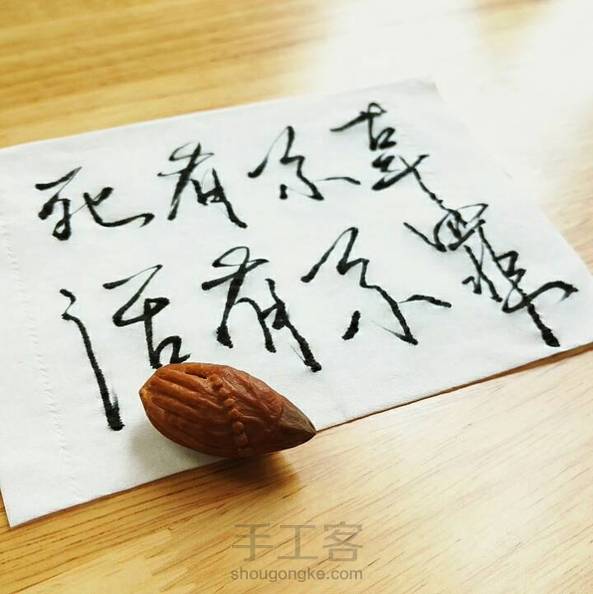 死有余辜
活有余罪
手工客
shougongke.com